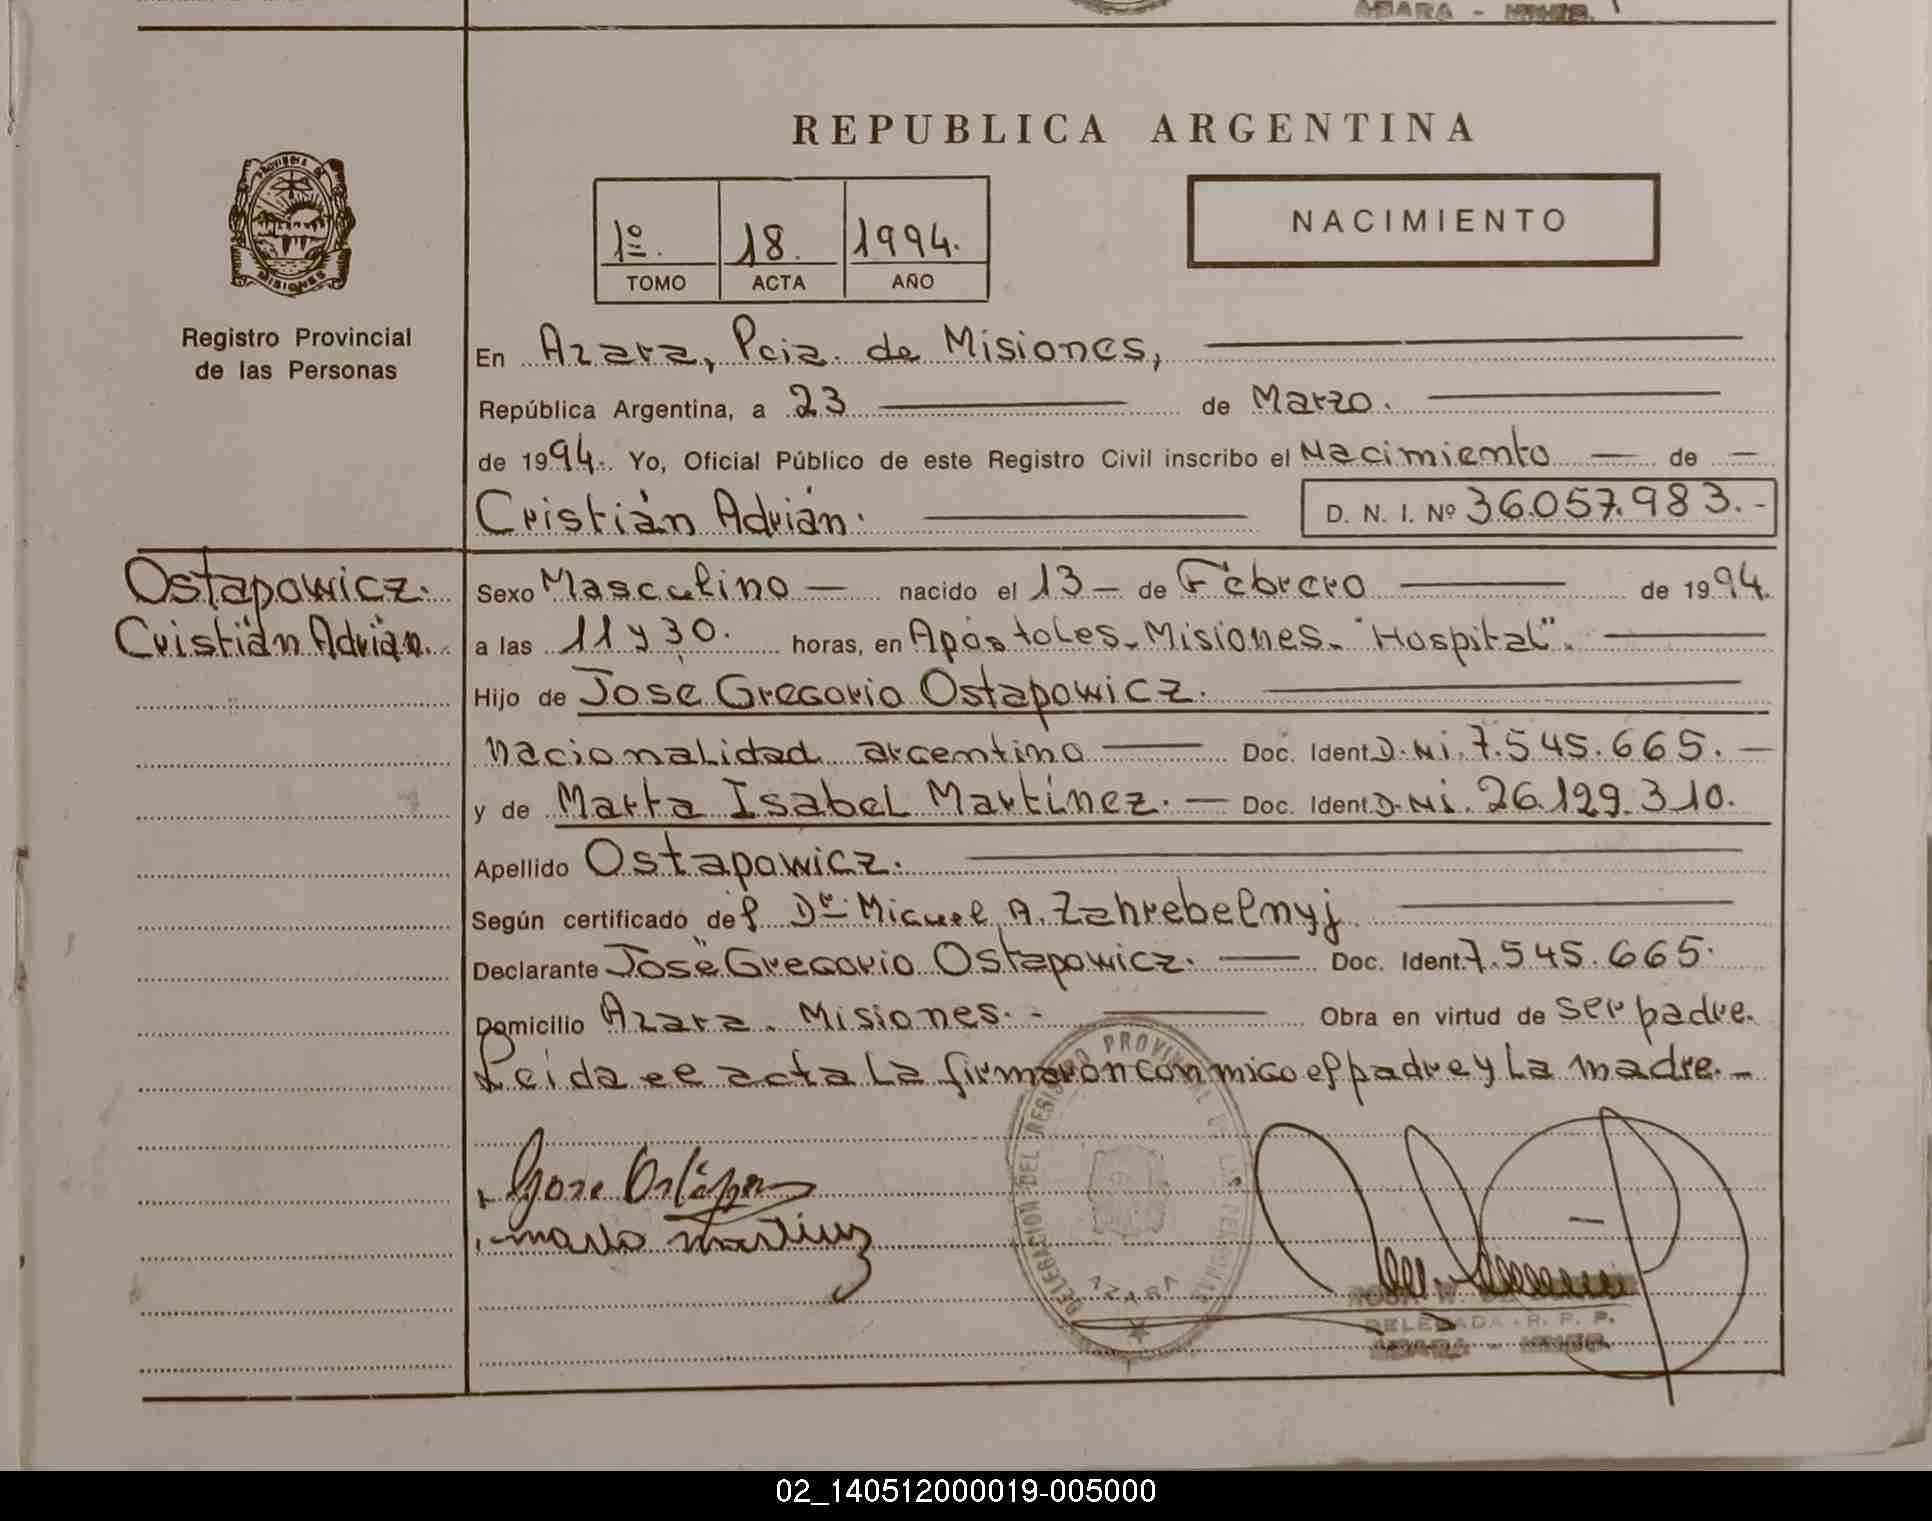 AZARA - MNES.
REPUBLICA ARGENTINA
PROVINCIA DE
MISIONES
1º. 18. 1994.
TOMO ACTA AÑO
NACIMIENTO
Registro Provincial
de las Personas
En Azara, Pcia. de Misiones,
República Argentina, a 23 de Marzo.
de 1994. Yo, Oficial Público de este Registro Civil inscribo el Nacimiento de
Cristián Adrián. D. N. I. Nº 36.057.983.-
Ostapowicz.
Cristián Adrián.
Sexo Masculino nacido el 13 de Febrero de 1994.
a las 11 y 30. horas, en Apóstoles-Misiones-"Hospital".
Hijo de Jose Gregorio Ostapowicz.
Nacionalidad argentino Doc. Ident. D.Ni. 7.545.665.
y de Marta Isabel Martínez. Doc. Ident. D.Ni. 26.129.310.
Apellido Ostapowicz.
Según certificado del Dr. Miguel A. Zahrebelnyj
Declarante José Gregorio Ostapowicz. Doc. Ident. 7.545.665.
Domicilio Azara. Misiones.- Obra en virtud de ser padre.
Leida el acta la firmaron conmigo el padre y la madre.-
DELEGACION DEL REGISTRO PROVINCIAL DE LAS PERSONAS
AZARA
Jose Ostapow
Marta Martinez
DELEGADA - R. P. P.
AZARA - MNES.
02_140512000019-005000